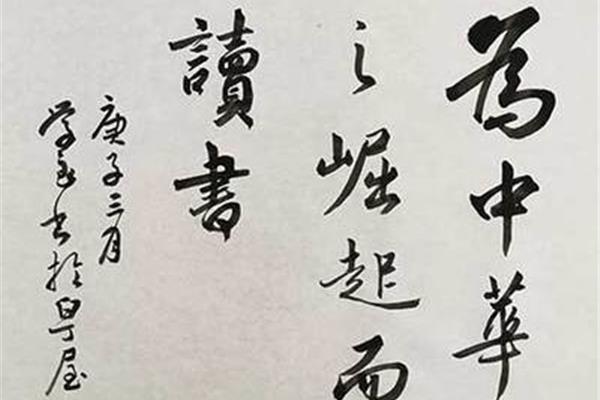 為中華
之崛起而
讀書
庚子三月
書於
屋